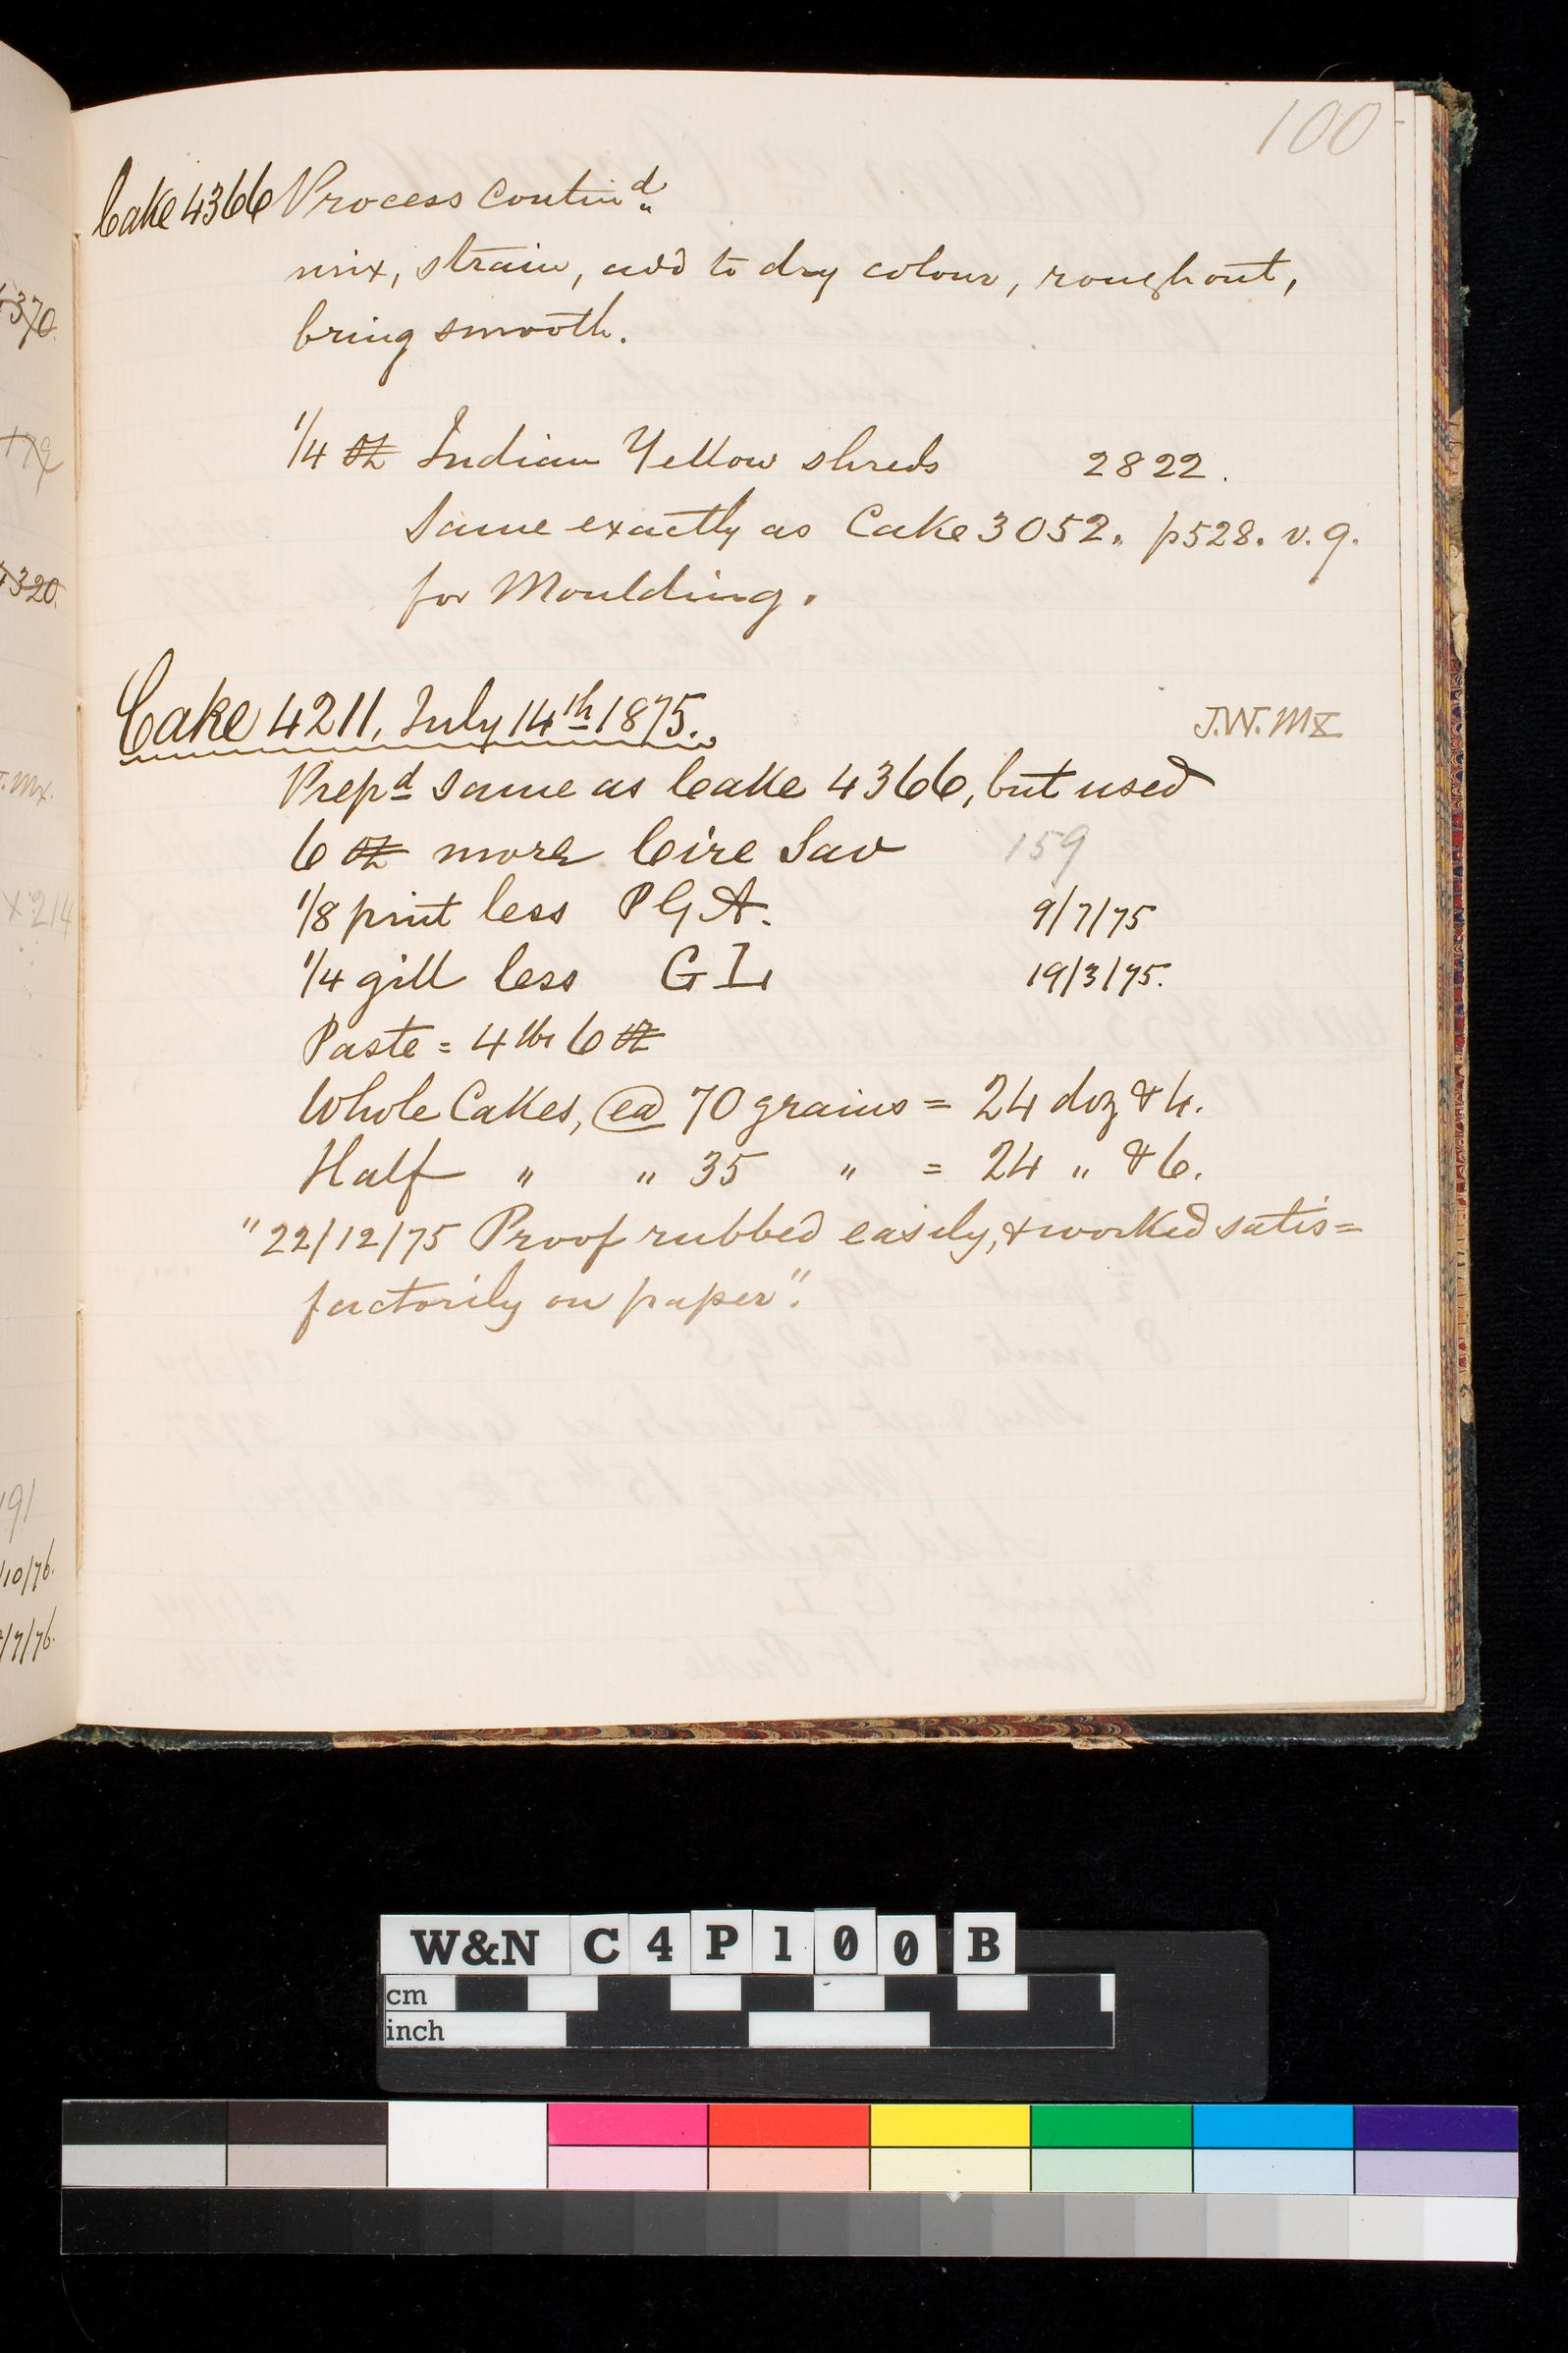 100
Cake 4366 Process Contind
mix, strain, add to dry colour, rough out,
bring smooth.
1/4 oz Indian Yellow shreds 2822.
Same exactly as Cake 3052. p528. v. 9.
for Moulding.
Cake 4211, July 14th 1875. J.W. MX
Prepd same as Cake 4366, but used
6 oz more Cire Sav 159
1/8 pint less PGA. 9/7/75
1/4 gill less GL 19/3/75.
Paste = 4 lbs 6 oz
Whole Cakes, ea 70 grains = 24 doz & 4.
Half " " 35 " = 24 " & 6.
"22/12/75 Proof rubbed easily, & worked satis=
factorily on paper".
4370.
4320.
T. Mx.
X 214
191
/10/76.
/7/76.
W&N C4P100 B
cm
inch